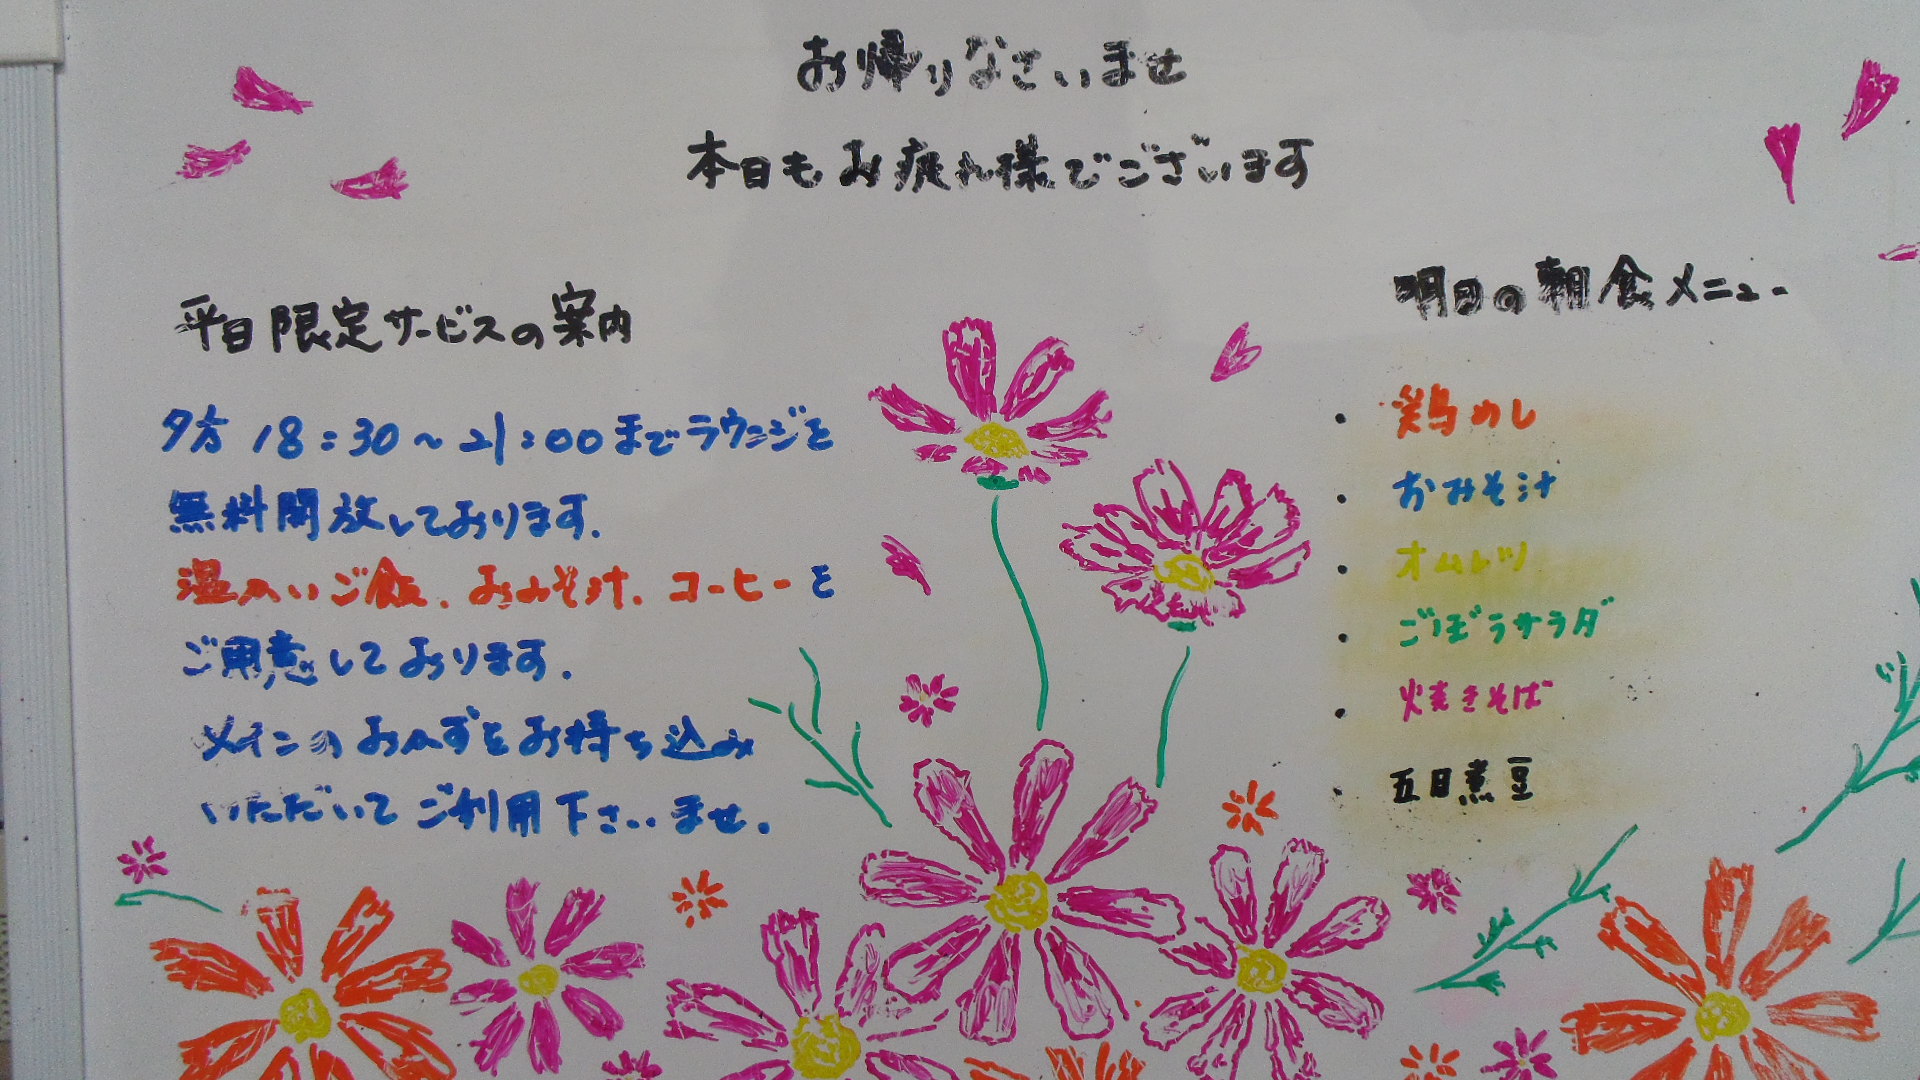 お帰りなさいませ
本日もお疲れ様でございます
平日限定サービスの案内
夕方 18:30~21:00までラウンジを
無料開放しております.
温かいご飯、おみそ汁、コーヒーを
ご用意しております.
メインのおかずをお持ち込み
いただいてご利用下さいませ.
明日の朝食メニュー
・鶏めし
・おみそ汁
・オムレツ
・ごぼうサラダ
・焼きそば
・五目煮豆